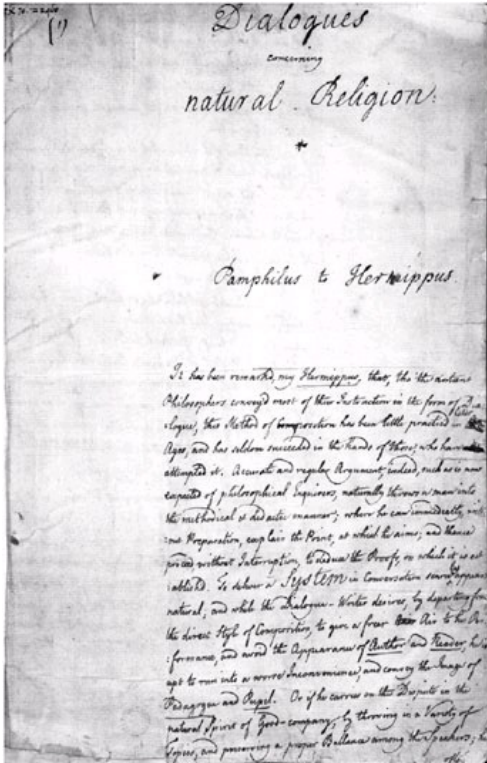 (1)
Dialogues
concerning
natural Religion.
Pamphilus to Hermippus.
It has been remarked, my Hermippus, that, tho the antient
Philosophers convey'd most of their Instruction in the form of Dia-
logue, this Method of Composition has been little practiced in later
Ages, and has seldom succeeded in the hands of those, who have
attempted it. Accurate and regular Argument, indeed, such as is now
expected of philosophical Inquirers, naturally throws a man into
the methodical & didactic manner; where he can immediately, with-
out Preparation, explain the Point, at which he aims; and thence
proceed, without Interruption, to deduce the Proofs, on which it is est
ablish'd. To deliver a System in Conversation scarce appears
natural; and while the Dialogue-Writer desires, by departing from
the direct Style of Composition, to give a freer Air to his Per
:formance, and avoid the Appearance of Author and Reader, he is
apt to run into a worse Inconvenience, and convey the Image of
Pedagogue and Pupil. Or if he carries on the Dispute in the
natural Spirit of Good-company, by throwing in a Variety of
Topics, and preserving a proper Ballance among the Speakers; he